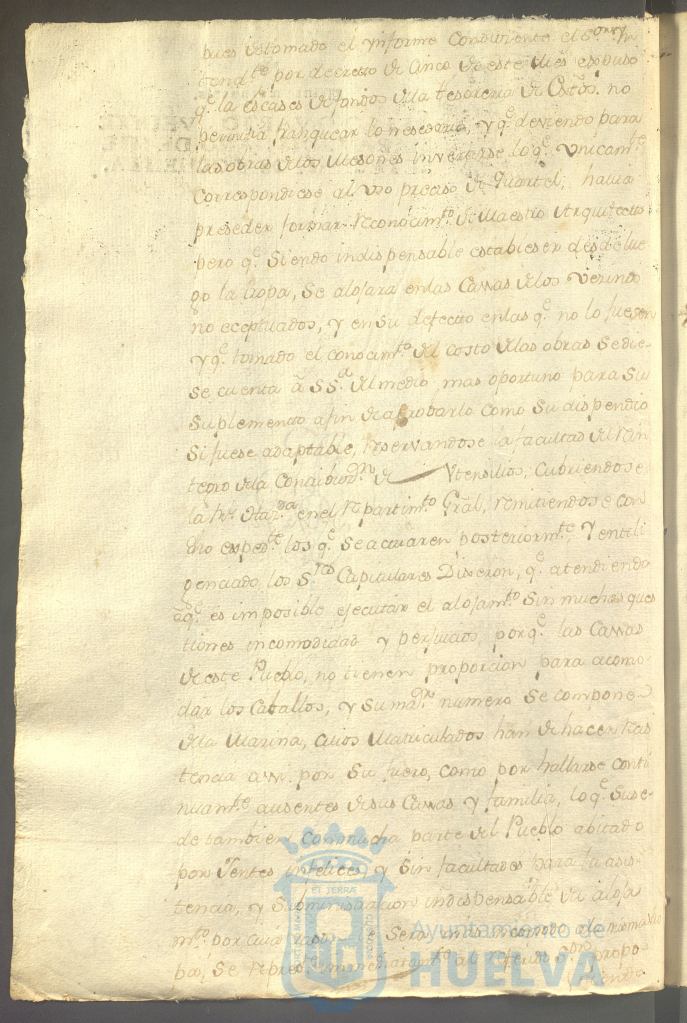 pues vistomado el ynforme Conduzente el Sor. yn
tendte. por decreto de cinco de este mes expuso
qe. la escases de fondos de la tesoreria de no
permitia franquear lo nesesario, y qe. deviendo para
las obras de los Mesones invertirse lo qe. vnicamte.
Correspondiese al vso preciso de Quartel, havia
preseder formar Reconocimto. de Maestro Arquitecto
pero qe. siendo indispensable estableser desde lue-
go la tropa, se alojara en las Cassas de los vezinos
no eceptuados, y en su defecto en las qe. no lo fuesen
y qe. tomado el conocimto. del costo de las obras se die-
se cuenta á SSa. del medio mas oportuno para su
suplemento afin de aprobarlo como su dispendio
si fuese adaptable, reservandose la facultad del Rein
tegro de la Contribuon. de Vtensilios, Cubriendose
la Rl. Hazda. en el Repartimto. Gral, remitiendose con
dho expedte. los qe. se actuaren posteriormte., Y enteli
genciado, los Sres. Capitulares Dixeron, qe. atendiendo
aqe. es imposible ejecutar el alojamto. sin muchas ques
tiones incomodidad y perjuicios, porqe. las Cassas
de este Pueblo, no tienen proporcion para acomo-
dar los Caballos, y su mor. numero se compone
de la Marina, cuios Matriculados han de hacer Resis
tencia assi por su fuero, como por hallarse conti
nuamte. ausentes de sus Cassas y familia, lo qe. suse-
de tambien con mucha parte del Pueblo abitado
por Jentes infelices y sin facultades para la asis-
tencia, y Subministracion indispensable de aloja
mto. por cuia será mas incomodo
se
Ayuntamiento de
HUELVA